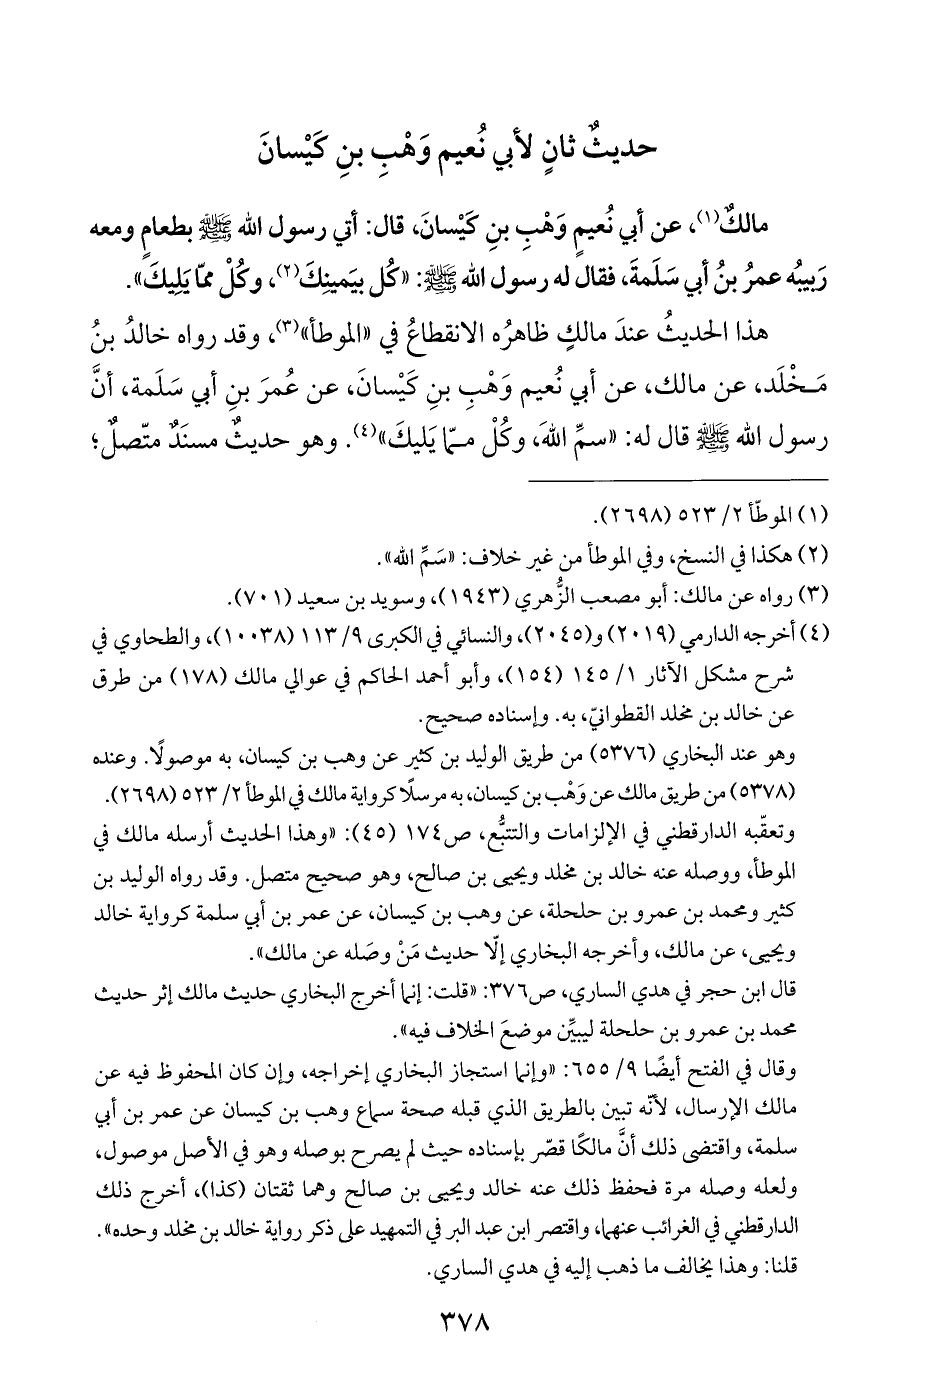 حديثٌ ثانٍ لأبي نُعيم وَهْبِ بنِ كَيْسانَ
مالكٌ(١)، عن أبي نُعيمٍ وَهْبِ بنِ كَيْسانَ، قال: أتي رسول الله ﷺ بطعامٍ ومعه
رَبيبُه عمرُ بنُ أبي سَلَمةَ، فقال له رسول الله ﷺ: «كُل بيَمينِكَ(٢)، وكُلْ ممّا يَلِيكَ».
هذا الحديثُ عندَ مالكٍ ظاهرُه الانقطاعُ في «الموطأ»(٣)، وقد رواه خالدُ بنُ
مَخْلَد، عن مالك، عن أبي نُعيم وَهْبِ بنِ كَيْسانَ، عن عُمرَ بنِ أبي سَلَمة، أنَّ
رسول الله ﷺ قال له: «سمِّ اللهَ، وكُلْ ممّا يَليكَ»(٤). وهو حديثٌ مسنَدٌ متّصلٌ؛
(١) الموطّأ ٢/ ٥٢٣ (٢٦٩٨).
(٢) هكذا في النسخ، وفي الموطأ من غير خلاف: «سَمِّ الله».
(٣) رواه عن مالك: أبو مصعب الزُّهري (١٩٤٣)، وسويد بن سعيد (٧٠١).
(٤) أخرجه الدارمي (٢٠١٩) و(٢٠٤٥)، والنسائي في الكبرى ٩/ ١١٣ (١٠٠٣٨)، والطحاوي في
شرح مشكل الآثار ١/ ١٤٥ (١٥٤)، وأبو أحمد الحاكم في عوالي مالك (١٧٨) من طرق
عن خالد بن مخلد القطوانيّ، به. وإسناده صحيح.
وهو عند البخاري (٥٣٧٦) من طريق الوليد بن كثير عن وهب بن كيسان، به موصولًا. وعنده
(٥٣٧٨) من طريق مالك عن وَهْب بن كيسان، به مرسلًا كرواية مالك في الموطأ ٢/ ٥٢٣ (٢٦٩٨).
وتعقّبه الدارقطني في الإلزامات والتتبُّع، ص١٧٤ (٤٥): «وهذا الحديث أرسله مالك في
الموطأ، ووصله عنه خالد بن مخلد ويحيى بن صالح، وهو صحيح متصل. وقد رواه الوليد بن
كثير ومحمد بن عمرو بن حلحلة، عن وهب بن كيسان، عن عمر بن أبي سلمة كرواية خالد
ويحيى، عن مالك، وأخرجه البخاري إلّا حديث مَنْ وصَله عن مالك».
قال ابن حجر في هدي الساري، ص٣٧٦: «قلت: إنما أخرج البخاري حديث مالك إثر حديث
محمد بن عمرو بن حلحلة ليبيِّن موضعَ الخلاف فيه».
وقال في الفتح أيضًا ٩/ ٦٥٥: «وإنما استجاز البخاري إخراجه، وإن كان المحفوظ فيه عن
مالك الإرسال، لأنّه تبين بالطريق الذي قبله صحة سماع وهب بن كيسان عن عمر بن أبي
سلمة، واقتضى ذلك أنَّ مالكًا قصّر بإسناده حيث لم يصرح بوصله وهو في الأصل موصول،
ولعله وصله مرة فحفظ ذلك عنه خالد ويحيى بن صالح وهما ثقتان (كذا)، أخرج ذلك
الدارقطني في الغرائب عنهما، واقتصر ابن عبد البر في التمهيد على ذكر رواية خالد بن مخلد وحده».
قلنا: وهذا يخالف ما ذهب إليه في هدي الساري.
٣٧٨